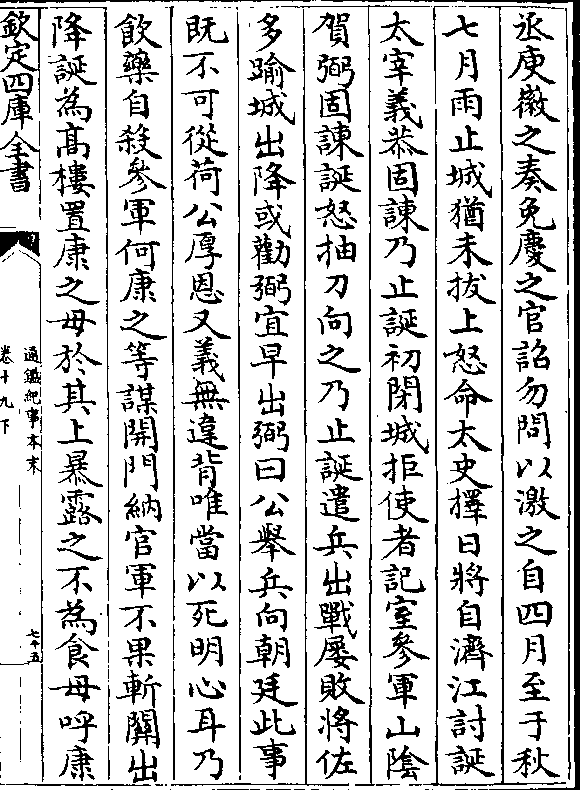 丞庾徽之奏免慶之官詔勿問以激之自四月至于秋
七月雨止城猶未拔上怒命太史擇日將自濟江討誕
太宰義恭固諫乃止誕初閉城拒使者記室參軍山陰
賀弼固諫誕怒抽刀向之乃止誕遣兵出戰屢敗將佐
多踰城出降或勸弼宜早出弼曰公舉兵向朝廷此事
既不可從荷公厚恩又義無違背唯當以死明心耳乃
飲藥自殺參軍何康之等謀開門納官軍不果斬關出
降誕為高樓置康之母於其上暴露之不為食母呼康
欽定四庫全書
通鑑紀事本末
卷十九下
七十五